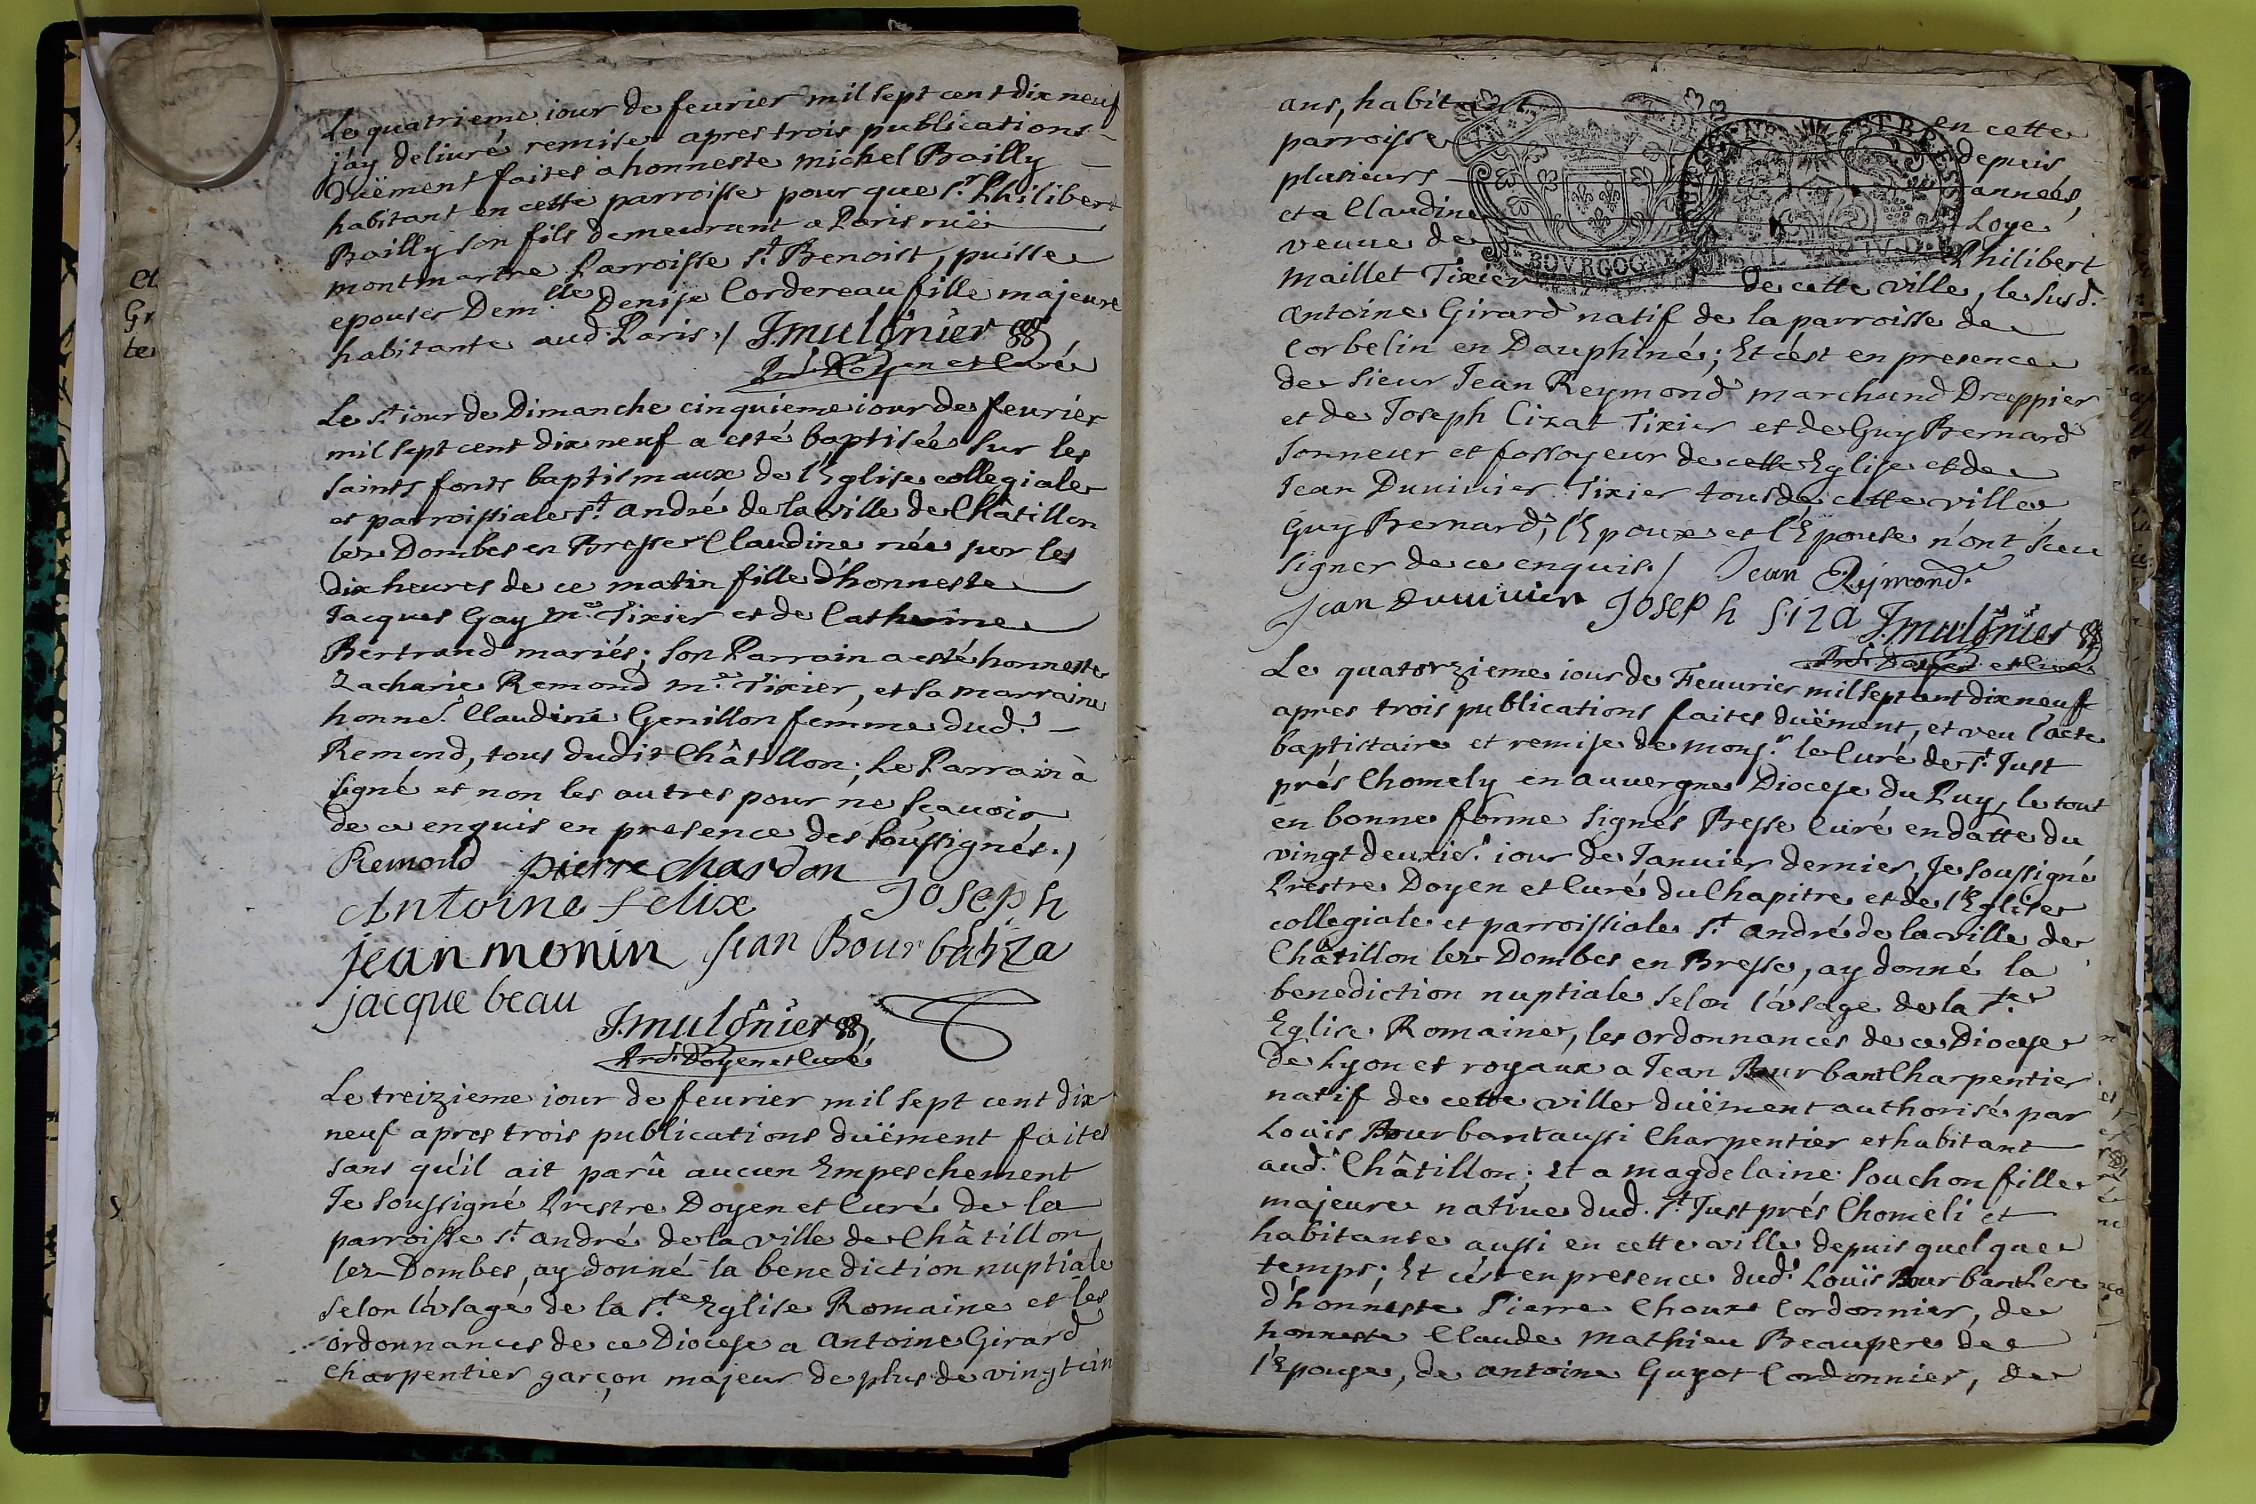 Le quatrieme iour de feurier mil sept cent dix neuf
j'ay deliuré remise apres trois publications
duëment faites a honneste michel Bailly
habitant en cette parroisse pour que sr. Philibert
Bailly son fils demeurant a Paris ruë
montmartre Parroisse st. Benoist, puisse
epouser Demlle. Denise Cordereau fille majeure
habitante aud. Paris./ J. mulsnier
Prd. Doyen et Curé
Le st. iour de Dimanche cinquieme iour de feurier
mil sept cent dix neuf a esté baptisée sur les
saints fonts baptismaux de l'Eglise collegiale
et parroissiale st. andré de la ville de Châtillon
lez Dombes en Bresse Claudine née sur les
dix heures de ce matin fille d'honneste
Jacques Gay me. Tixier et de Catherine
Bertrand mariés; son Parrain a esté honneste
Zacharie Remond me. Tixier, et sa marraine
honne. Claudine Genillon femme dud.
Remond, tous dudit Châtillon; Le Parrain à
signé et non les autres pour ne sçauoir
de ce enquis en presence des soussignés./
Remond pierre chardon
Antoine felix Joseph
jean monin jean Bour
jacque beau
J. mulsnier
Prd. Doyen et Curé
Le treizieme iour de feurier mil sept cent dix
neuf apres trois publications duëment faites
sans qu'il ait parû aucun Empeschement
Je soussigné Prestre Doyen et Curé de la
parroisse st. andré de la ville de Châtillon
lez Dombes, ay donné la benediction nuptiale
selon l'vsage de la ste. Eglise Romaine et les
ordonnances de ce Diocese a antoine Girard
charpentier garçon majeur de plus de vingt cin
et
Gr
te
ans, habitant en cette
parroisse depuis
plusieurs années,
et a Claudine Loye
veuue de Philibert
maillet Tixier de cette ville, le susd.
antoine Girard natif de la parroisse de
Corbelin en Dauphiné; Et c'est en presence
de sieur Jean Reymond marchand Drappier
et de Joseph Cizat Tixier et de Guy Bernard
sonneur et fossoyeur de cette Eglise et de
Jean Duuiuier Tixier tous de cette ville
Guy Bernard, l'Epoux et l'Epouse n'ont sceu
signer de ce enquis./ Jean Rymond.
jean Duuiuier Joseph siza J. mulsnier
Prd. Doyen et Curé
BOVRGOGNE
Le quatorzieme iour de Feuurier mil sept cent dix neuf
apres trois publications faites duëment, et veu l'acte
baptistaire et remise de monsr. le Curé de st. Just
prés Chomely en auuergne Diocese du Puy, le tout
en bonne forme signés Besse Curé en datte du
vingt deuxie. iour de Januier dernier, Je soussigné
Prestre Doyen et Curé du Chapitre et de l'Eglise
collegiale et parroissiale st. andré de la ville de
Châtillon lez Dombes en Bresse, ay donné la
benediction nuptiale selon l'vsage de la ste.
Eglise Romaine, les ordonnances de ce Diocese
de Lyon et royaux a Jean Bourbant Charpentier
natif de cette ville duëment authorisé par
Louïs Bourbant aussi Charpentier et habitant
aud. Châtillon; Et a magdelaine Souchon fille
majeure natiue dud. st. Just prés Chomeli et
habitante aussi en cette ville depuis quelque
temps; Et c'est en presence dud. Louïs Bourbant Pere
d'honneste Pierre Choux Cordonnier, de
honneste Claude mathieu Beaupere de
l'Epouse, de antoine Guyot Cordonnier, de